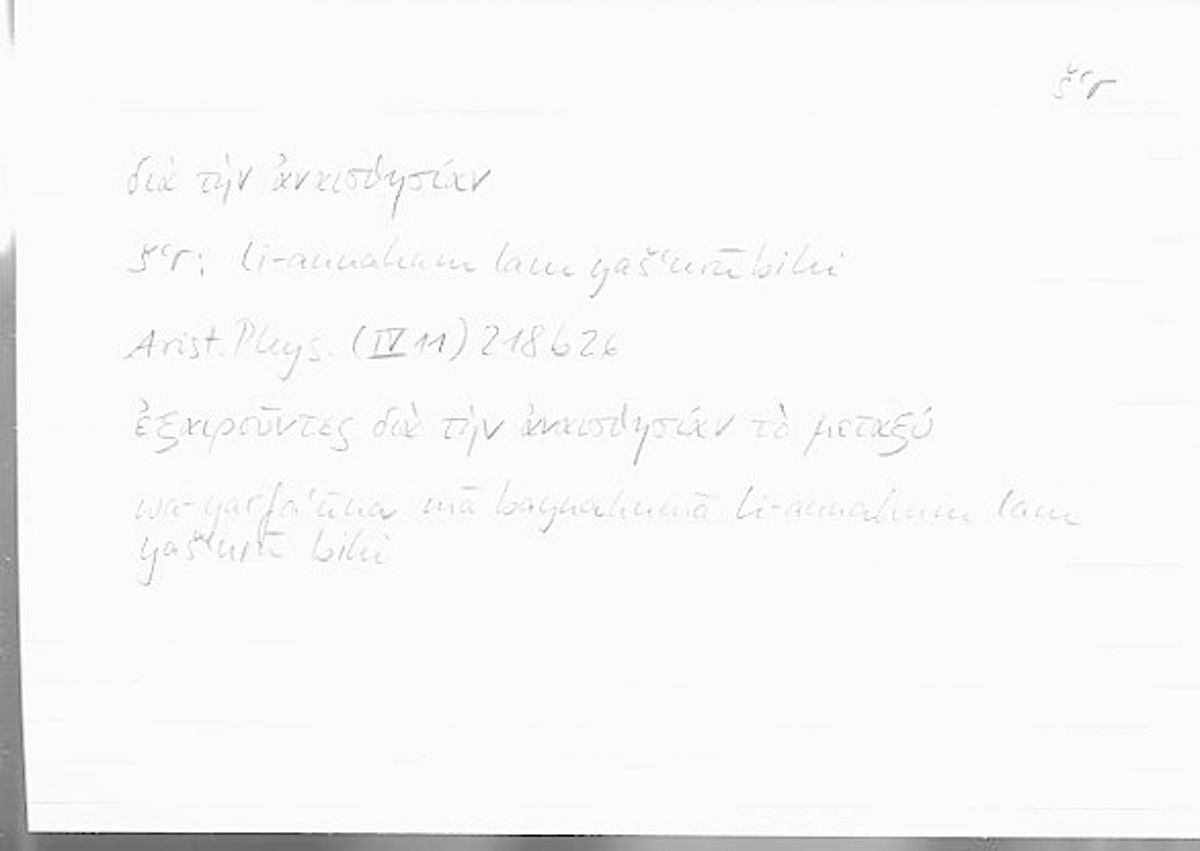 šʿr
διὰ τὴν ἀναισθησίαν
šʿr: li-annahum lam yašʿurū bihi
Arist. Phys. (IV 11) 218b26
ἐξαιροῦντες διὰ τὴν ἀναισθησίαν τὸ μεταξύ
wa-yarfaʿūna mā baynahumā li-annahum lam
yašʿurū bihi